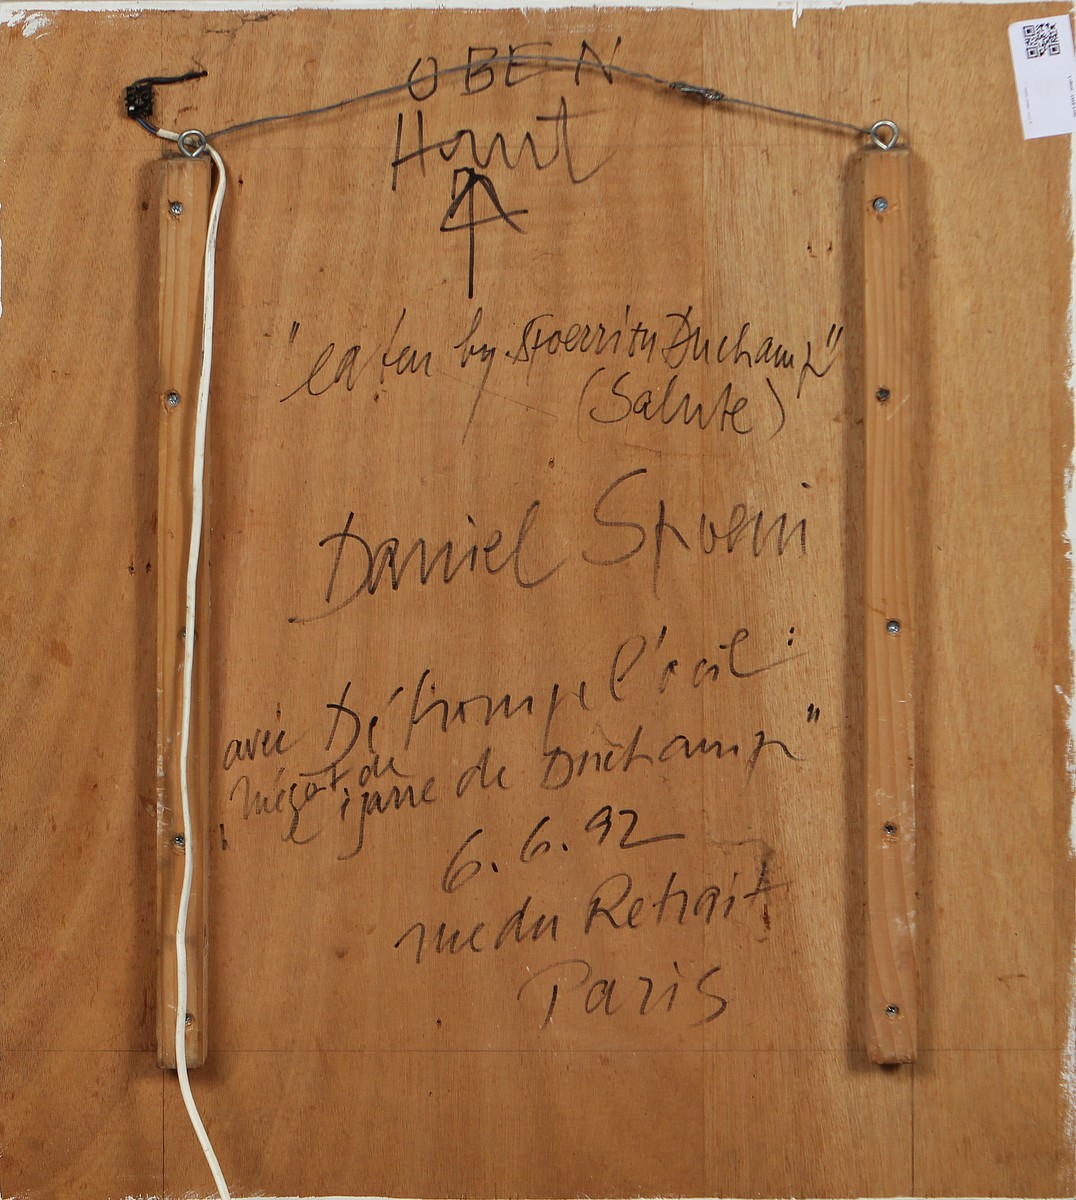 OBEN
Haut
"eaten by Spoerri tu Duchamp"
(Salute)
Daniel Spoerri
avec Détrompe l'œil :
"Mégot de cigarre de Duchamp"
6.6.92
rue du Retrait
Paris